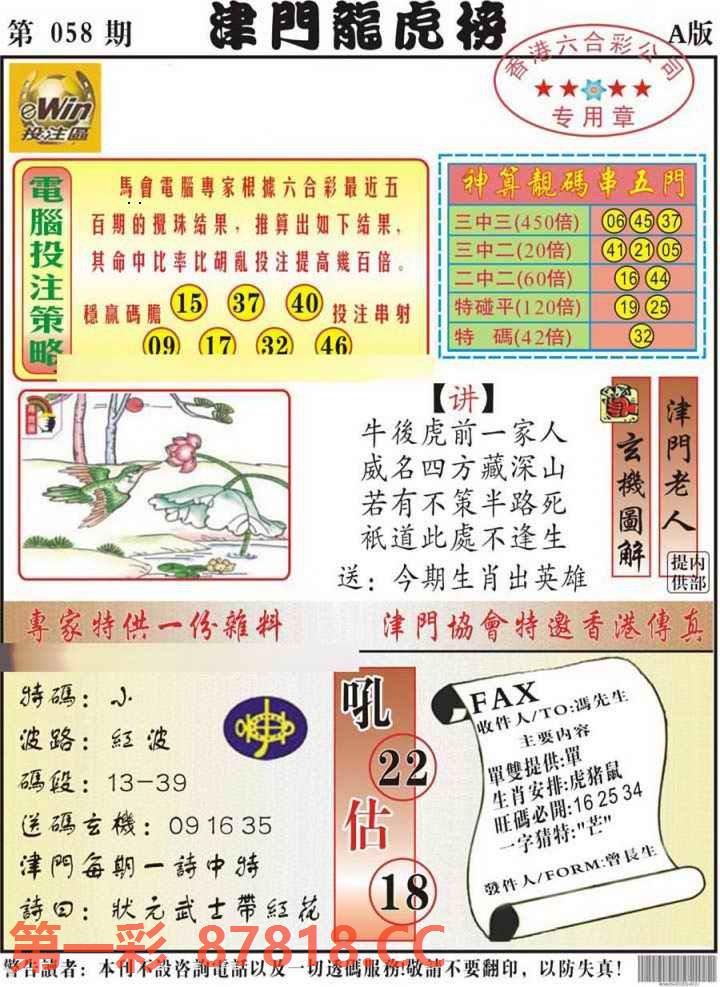 第 058 期
津門龍虎榜
A版
香港六合彩公司
★★★★
专用章
eWin
投注區
電腦投注策略
馬會電腦專家根據六合彩最近五
百期的攪珠结果，推算出如下结果，
其命中比率比胡亂投注提高幾百倍。
穩贏碼膽 15 37 40 投注串射
09 17 32 46
神算靚碼串五門
三中三(450倍) 06 45 37
三中二(20倍) 41 21 05
二中二(60倍) 16 44
特碰平(120倍) 19 25
特 碼(42倍) 32
【讲】
牛後虎前一家人
威名四方藏深山
若有不策半路死
祇道此處不逢生
送：今期生肖出英雄
玄機圖解
津門老人
内部提供
專家特供一份雜料
津門協會特邀香港傳真
特碼：小
波路：紅波
碼段：13-39
送碼玄機：09 16 35
津門每期一詩中特
詩曰：狀元武士帶紅花
吼
22
估
18
FAX
收件人/TO:馮先生
主要内容
單雙提供:單
生肖安排:虎猪鼠
旺碼必開:16 25 34
一字猜特:"芒"
發件人/FORM:曾長生
第一彩 87818.CC
警告讀者：本刊不設咨詢電話以及一切透碼服務!敬請不要翻印，以防失真!